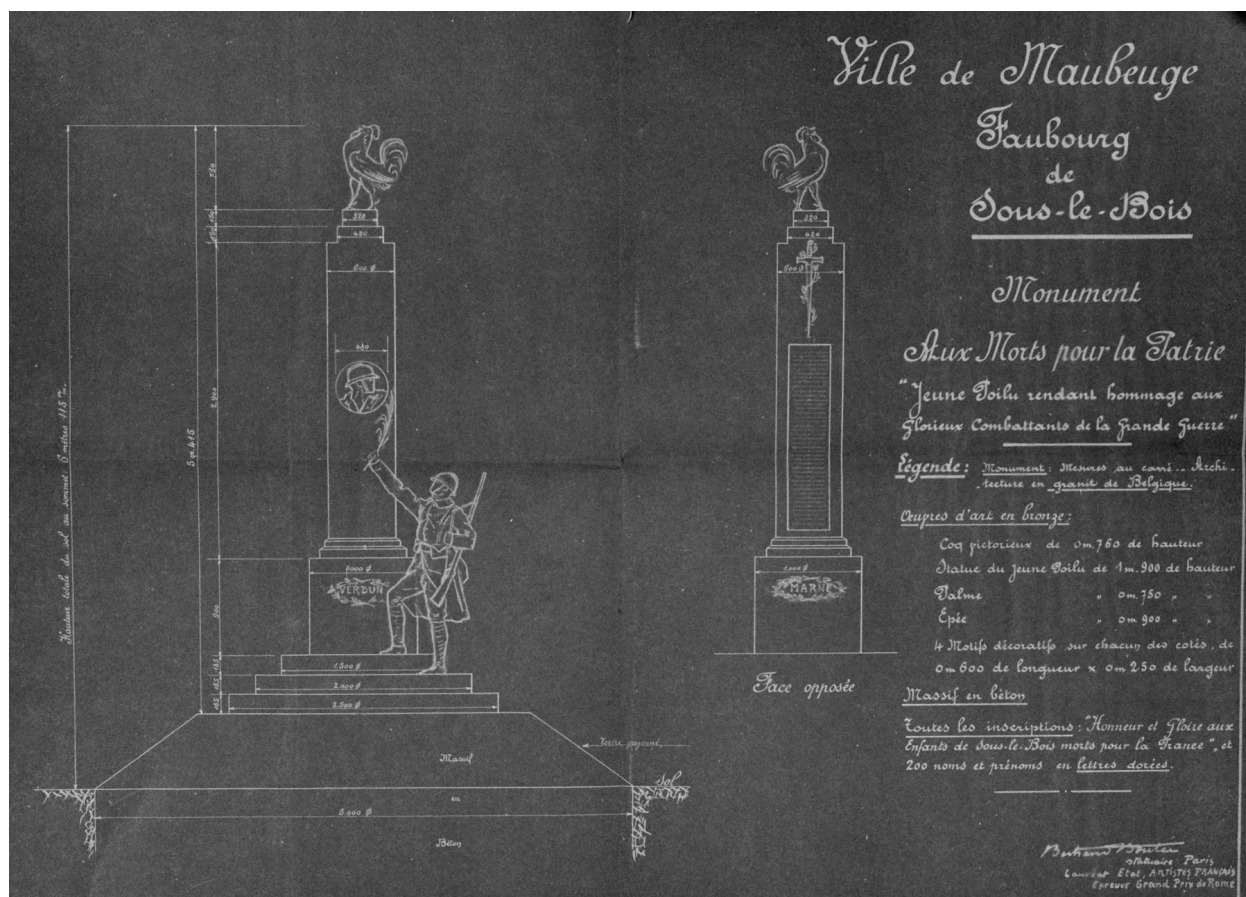 Ville de Maubeuge
Faubourg
de
Sous-le-Bois
Monument
Aux Morts pour la Patrie
"Jeune Poilu rendant hommage aux
Glorieux Combattants de la Grande Guerre"
Légende: Monument: Mesures au carré.. Archi-
tecture en granit de Belgique.
Œuvres d'art en bronze:
Coq victorieux de 0m,760 de hauteur
Statue du Jeune Poilu de 1m.900 de hauteur
Palme " 0m.750 " "
Epée " 0m900 " "
4 Motifs décoratifs sur chacun des cotés, de
0m600 de longueur x 0m250 de largeur
Massif en béton
Toutes les inscriptions: "Honneur et Gloire aux
Enfants de Sous-le-Bois morts pour la France", et
200 noms et prénoms en lettres dorées.
Bertrand
statuaire Paris
Lauréat Etat, ARTISTES FRANÇAIS
Epreuve Grand Prix de Rome
Hauteur totale du sol au sommet: 6 mètres 115 m.
5m,415
760
150
150
2.900
900
185
185
185
320
420
600 ø
480
1000 ø
VERDUN
1.500 ø
2.000 ø
2.500 ø
Massif
en
Béton
5.000 ø
Terre
Sol
320
420
600 ø
1.000 ø
MARNE
Face opposée